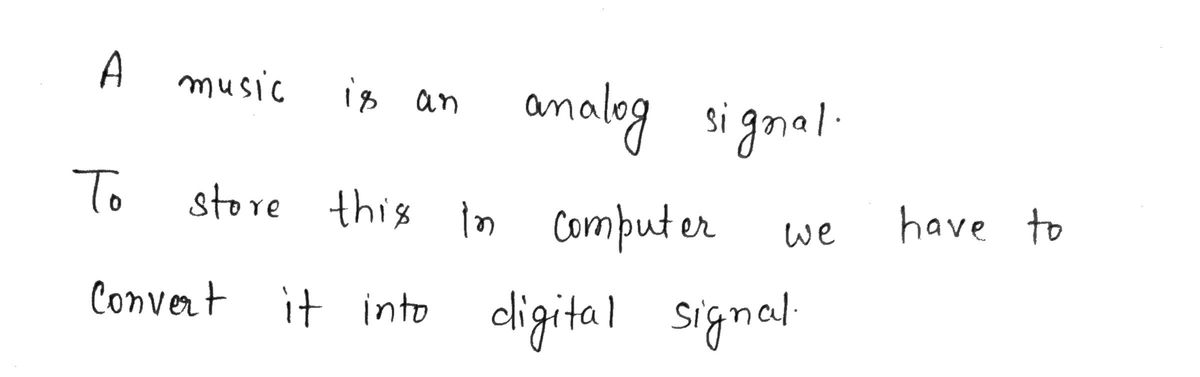 A music is an analog signal.
To store this in computer we have to
Convert it into digital signal.